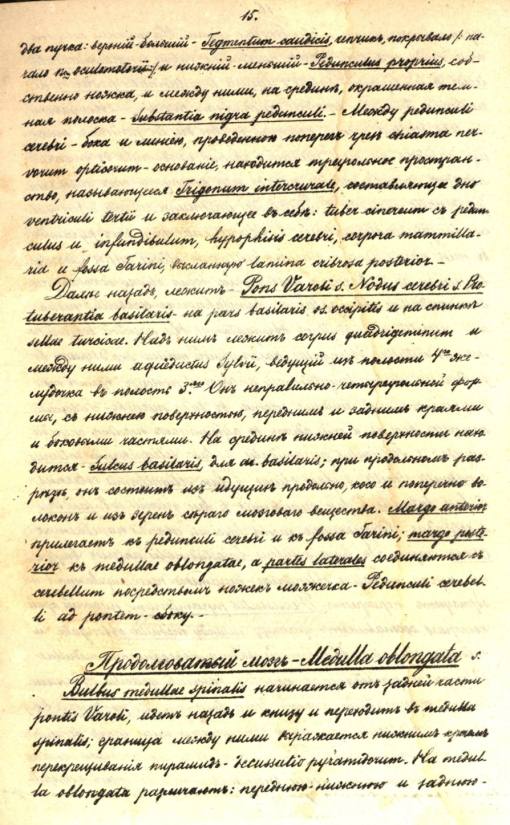 15.
два пучка: верхній-большій - Tegmentum caudicis, чепчикъ, покрывало (: на-
чало n. oculomotorii:) и нижній-меньшій - Pedunculus proprius, соб-
ственно ножка, и между ними, на срединѣ, окрашенная тем-
ная полоска - Substantia nigra pedunculi. - Между pedunculi
cerebri - бока и линіею, проведенною поперегъ чрезъ chiasma ner-
vorum opticorum - основаніе, находится треугольное простран-
ство, называющееся Trigonum intercrurale, составляющее дно
ventriculi tertii и заключающее въ себѣ: tuber cinereum съ pedun-
culus и infundibulum, hypophisis cerebri, corpora mammilla-
ria и fossa Tarini, высланную lamina cribrosa posterior. -
Далѣе назадъ, лежитъ - Pons Varoli s. Nodus cerebri s. Pro-
tuberantia basilaris - на pars basilaris os. occipitis и на спинкѣ
sellae turcicae. Надъ нимъ лежитъ corpus quadrigeminum и
между ними aquaeductus Sylvii, ведущій изъ полости 4го же-
лудочка въ полость 3го. Онъ неправильно-четыреугольной фор-
мы, съ нижнею поверхностью, переднимъ и заднимъ краями
и боковыми частями. На срединѣ нижней поверхности нахо-
дится - Sulcus basilaris, для ar. basilaris; при продольномъ раз-
рѣзѣ, онъ состоитъ изъ идущихъ продольно, косо и поперечно во-
локонъ и изъ зеренъ сѣраго мозговаго вещества. Margo anterior
прилегаетъ къ pedunculi cerebri и къ fossa Tarini; margo poste-
rior къ medullae oblongatae, а partes laterales соединяются съ
cerebellum посредствомъ ножекъ мозжечка - Pedunculi cerebel-
li ad pontem - сбоку. -
Продолговатый мозгъ - Medulla oblongata s.
Bulbus medullae spinalis начинается отъ задней части
pontis Varoli, идетъ назадъ и книзу и переходитъ въ medulla
spinalis; граница между ними выражается нижнимъ краемъ
перекрещиванія пирамидъ - decussatio pyramidum. На medul-
la oblongata различаютъ: переднюю-нижнюю и заднюю-